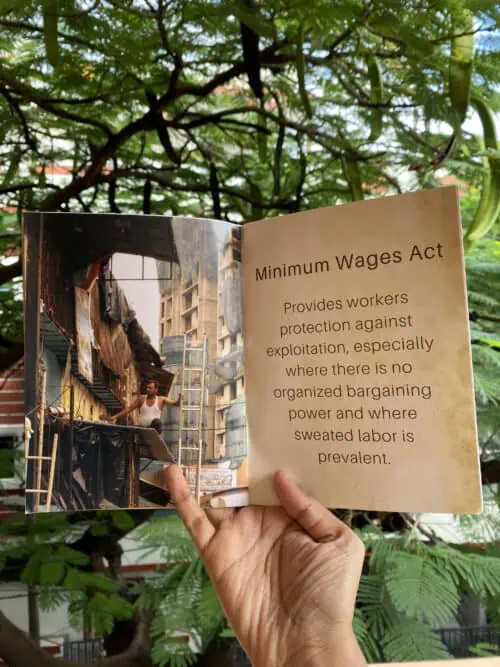 Minimum Wages Act
Provides workers
protection against
exploitation, especially
where there is no
organized bargaining
power and where
sweated labor is
prevalent.